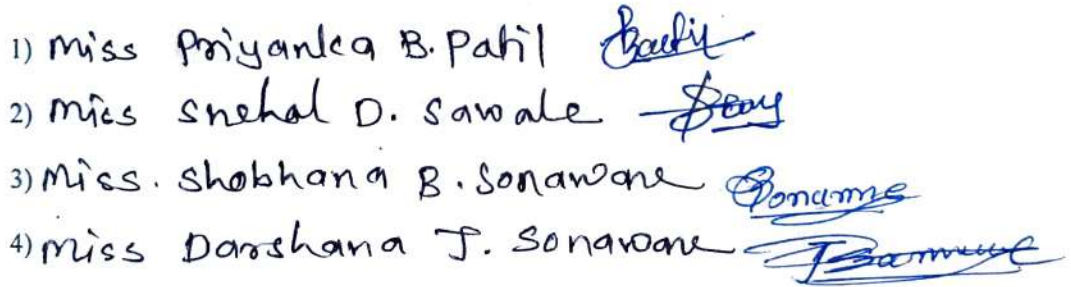 1) Miss Priyanka B. Patil
2) Miss Snehal D. Sawale
3) Miss. Shobhana B. Sonawane
4) Miss Darshana J. Sonawane